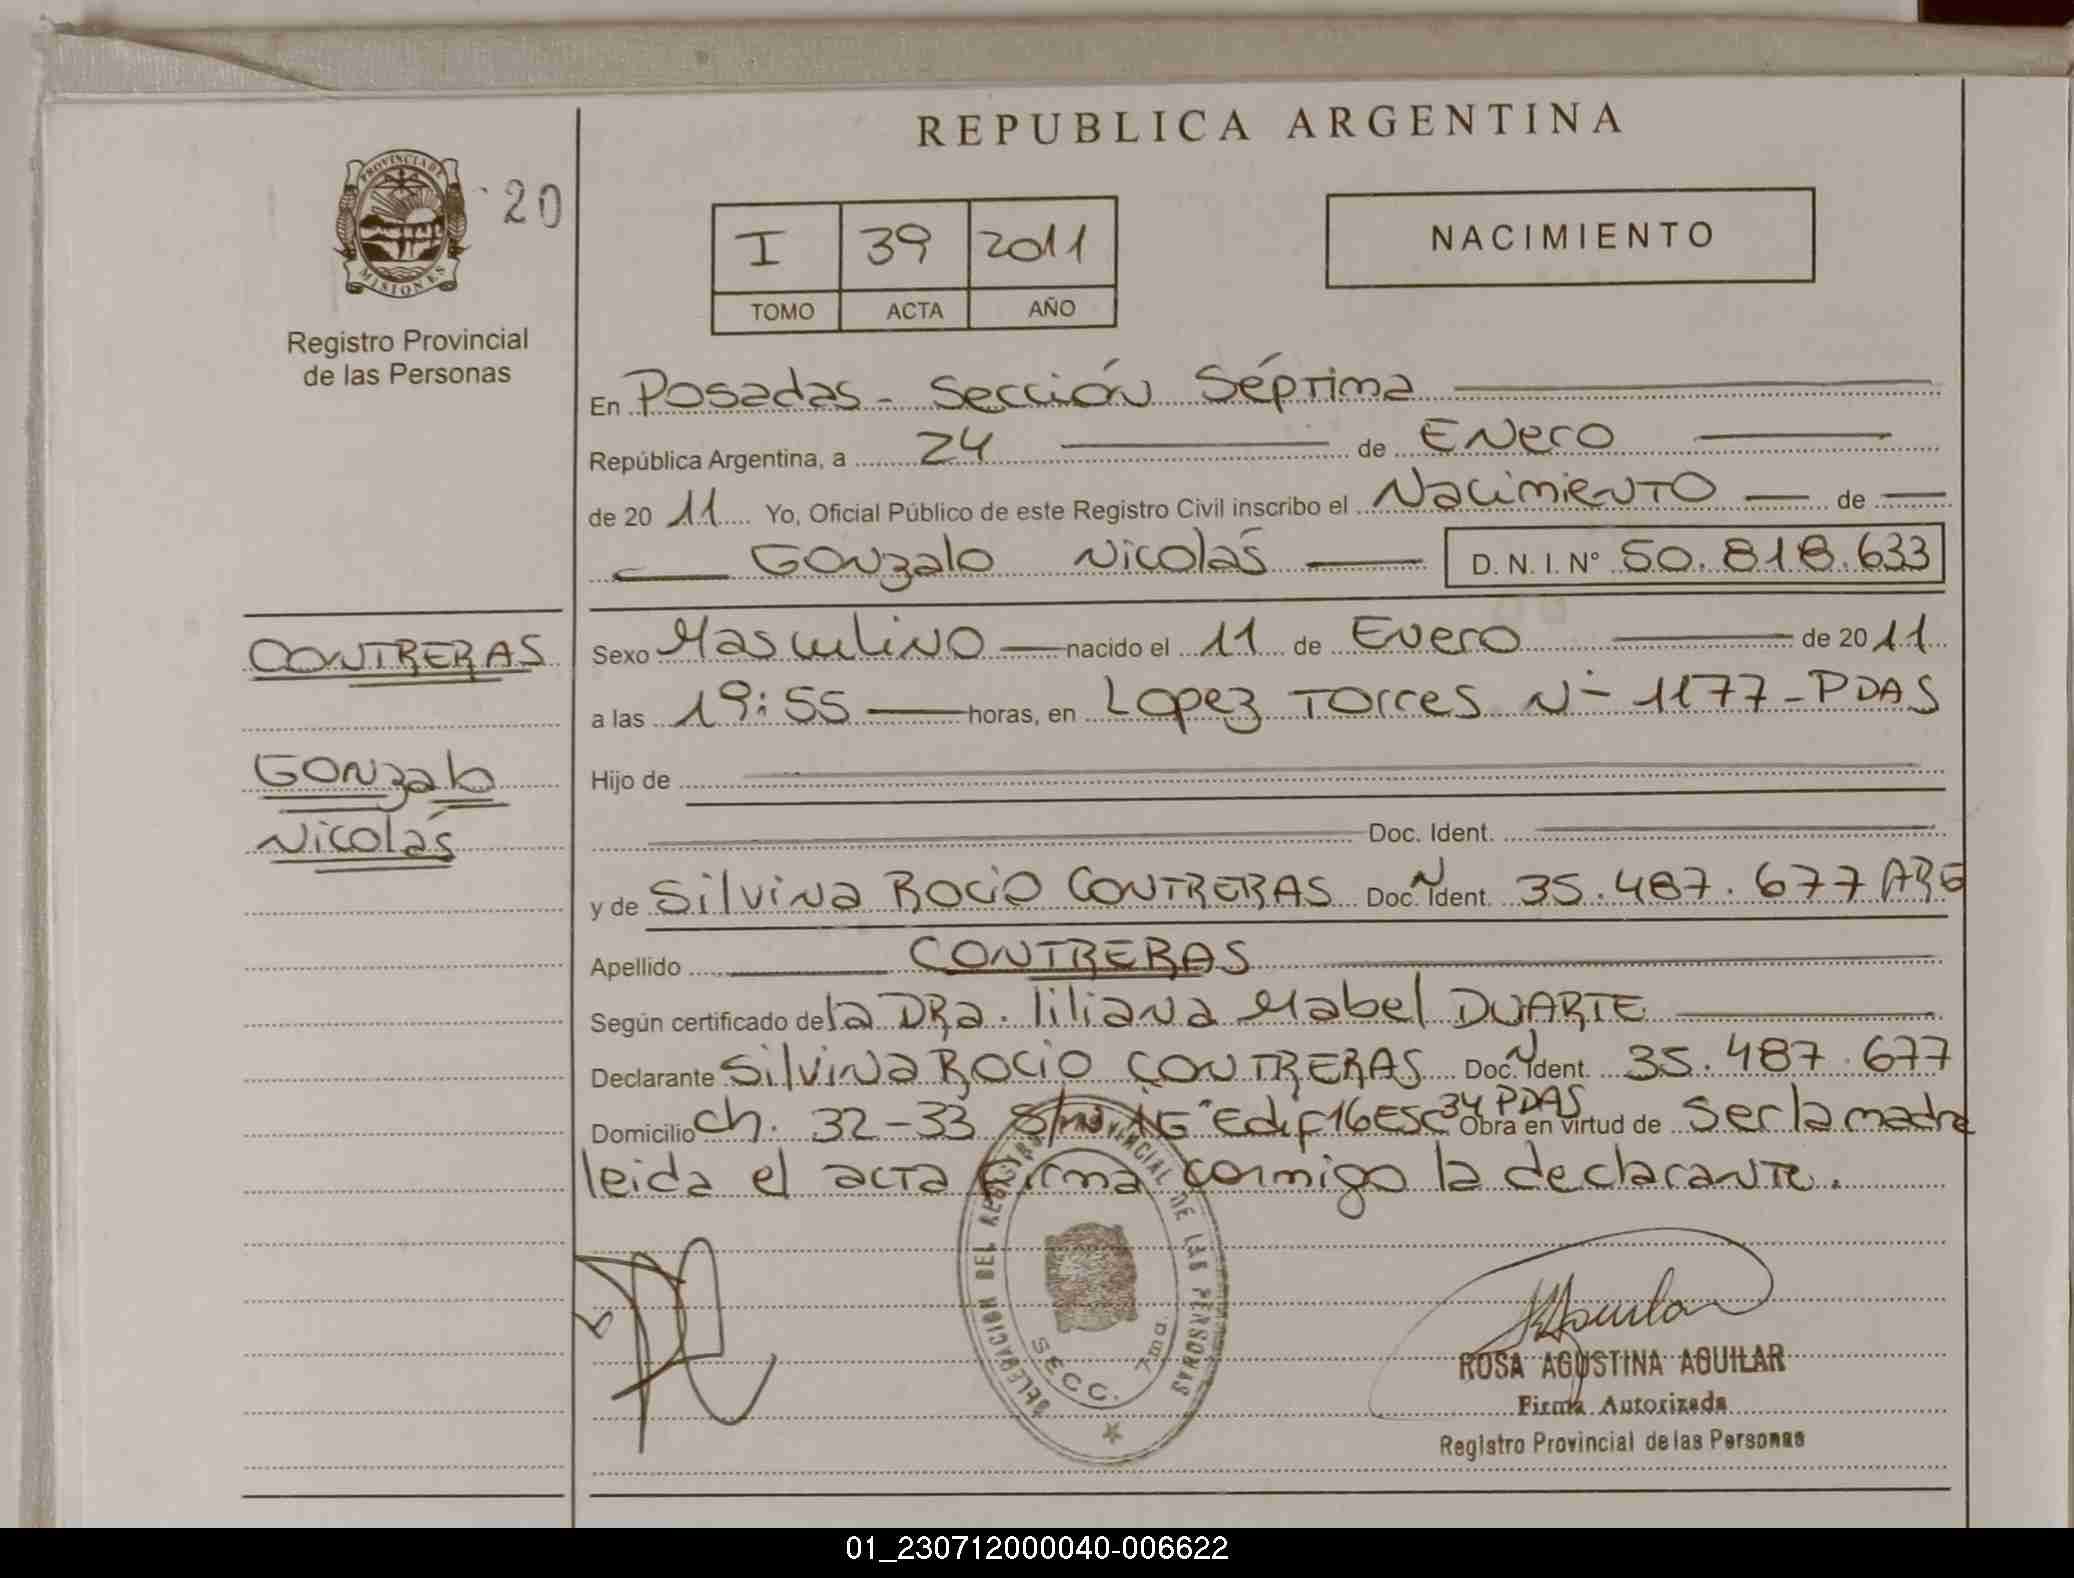 REPUBLICA ARGENTINA
PROVINCIA DE
MISIONES
20
Registro Provincial
de las Personas
I 39 2011
TOMO ACTA AÑO
NACIMIENTO
En Posadas - Sección Séptima
República Argentina, a 24 de Enero
de 20 11 Yo, Oficial Público de este Registro Civil inscribo el Nacimiento de
Gonzalo Nicolás D. N. I. Nº 50.818.633
CONTRERAS
Gonzalo
Nicolás
Sexo Masculino nacido el 11 de Enero de 20 11
a las 19:55 horas, en Lopez Torres Nº 1177 - PDAS
Hijo de
Doc. Ident.
y de Silvina Rocio CONTRERAS Doc. N Ident. 35.487.677 ARG
Apellido CONTRERAS
Según certificado de la DRa. liliana Mabel DUARTE
Declarante Silvina Rocio CONTRERAS Doc. N Ident. 35.487.677
Domicilio Ch. 32-33 S/nº Edif 16 ESC 34 PDAS Obra en virtud de ser la madre
leida el acta firma conmigo la declarante.
DELEGACION DEL REGISTRO PROVINCIAL DE LAS PERSONAS
SECC. 7ma.
ROSA AGUSTINA AGUILAR
Firma Autorizada
Registro Provincial de las Personas
01_230712000040-006622